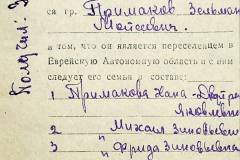 ся гр. Примаков Зельман
Мойсеевич.
в том, что он является переселенцем в
Еврейскую Автономную область и с ним
следует его семья в составе:
1 Примакова Хана-
Яковлевна
2 " Михаил Зиновьевич
3 " Фрида Зиновьевна
Получил: